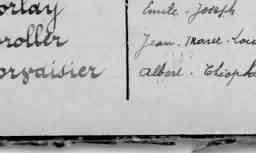 orlay Emile - Joseph
roller Jean - Marie - Loui
orvaisier Albert - Théoph